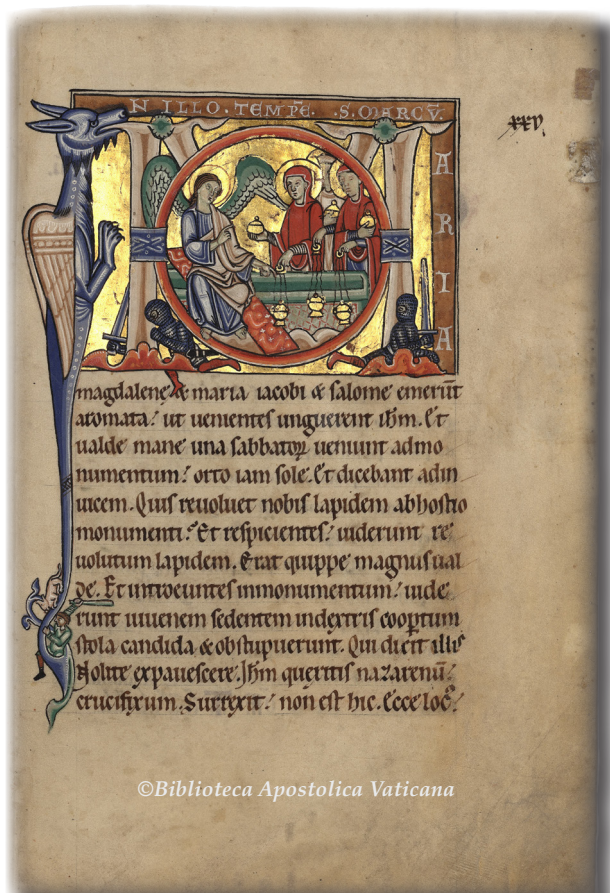 IN ILLO. TEMPR̅E. .S. MARCV̅.
xxv
M
ARIA
magdalene & maria iacobi & salome emerūt
aromata: ut uenientes unguerent ihm̅. Et
ualde mane una sabbatoꝝ ueniunt admo
numentum: orto iam sole. Et dicebant adin
uicem. Quis reuoluet nobis lapidem abhostio
monumenti. Et respicientes: uiderunt re
uolutum lapidem. Erat quippe magnus ual
de. Et introeuntes inmonumentum: uide
runt iuuenem sedentem indextris coop̅tum
stola candida & obstupuerunt. Qui dicit illis
Nolite expauescere. Ihm̅ queritis nazarenū:
crucifixum. Surrexit: non est hic. Ecce loc᷒:
©Biblioteca Apostolica Vaticana